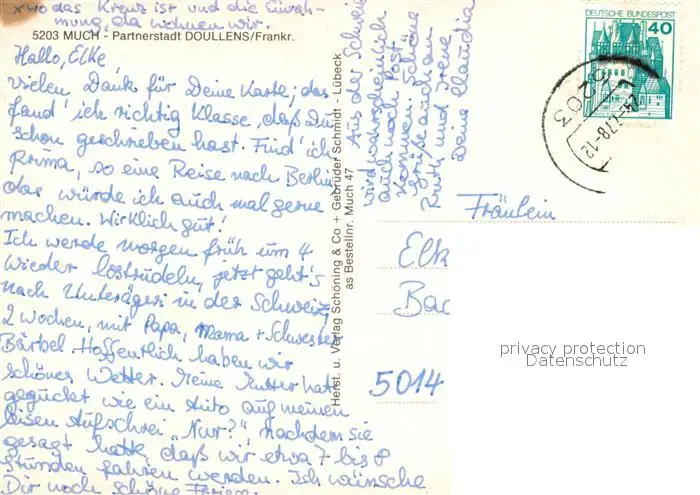 xwo das Kreuz ist und die Einrah-
mung, da wohnen wir.
5203 MUCH - Partnerstadt DOULLENS/Frankr.
Hallo, Elke
Vielen Dank für Deine Karte; das
fand' ich richtig Klasse, daß Du
schon geschrieben hast. Find' ich
Prima, so eine Reise nach Berlin
das würde ich auch mal gerne
machen. Wirklich gut!
Ich werde morgen früh um 4
wieder lostrudeln, jetzt geht's
nach Unterägeri in der Schweiz,
2 Wochen, mit Papa, Mama + Schwester
Bärbel. Hoffentlich haben wir
schönes Wetter. Meine Mutter hat
geguckt wie ein Auto auf meinen
leisen Aufschrei "Nur?", nachdem sie
gesagt hatte, daß wir etwa 7 bis 8
Stunden fahren werden. Ich wünsche
Dir noch schöne Ferien.
Aus der Schweiz
wird wahrscheinlich
auch noch Post
kommen. Schöne
Grüße auch an
Ruth und Irene
Deine Claudia
Herst. u. Verlag Schöning & Co + Gebrüder Schmidt - Lübeck
as Bestellnr. Much 47
DEUTSCHE BUNDESPOST
40
5203
-4.7.78-12
Fräulein
Elk
Bac
5014
privacy protection
Datenschutz